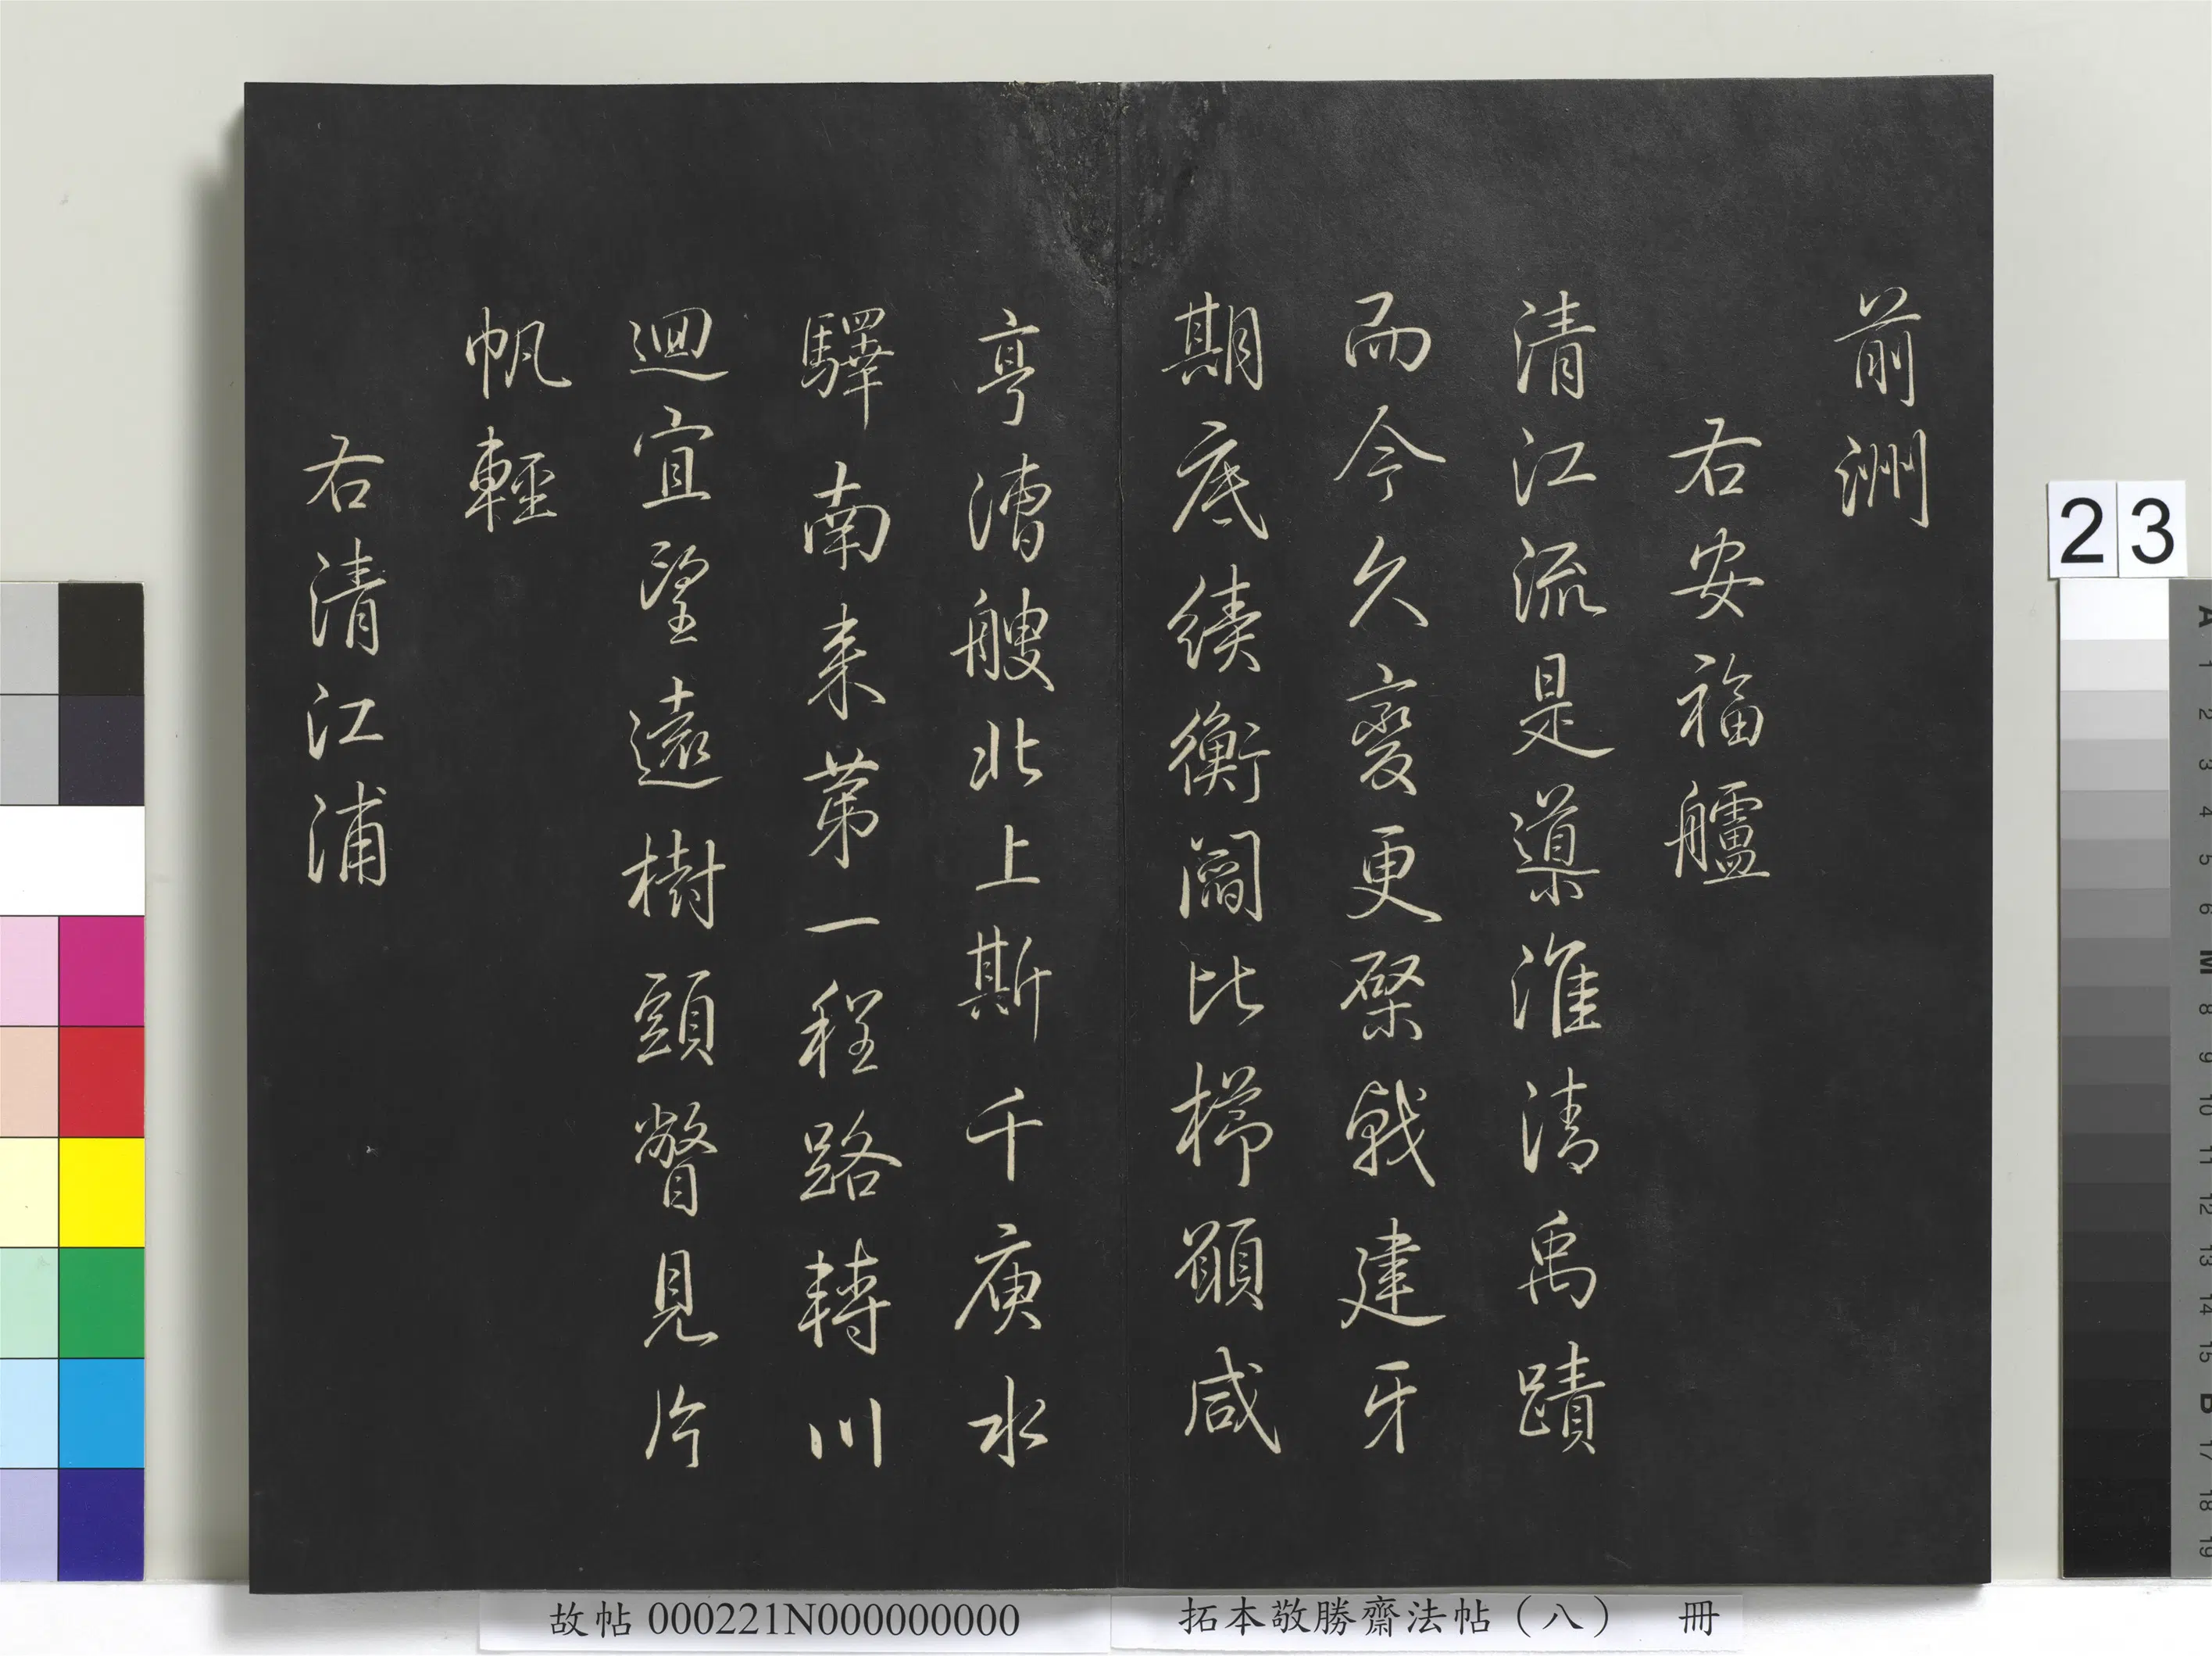 前洲
右安福艫
清江流是導淮清禹蹟
而今久變更棨戟建牙
期底績衡閻比櫛顧咸
亨漕艘北上斯千庾水
驛南来第一程路轉川
迴宜望遠樹頭瞥見片
帆輕
右清江浦
23
故帖 000221N000000000
拓本敬勝齋法帖（八） 冊
A
1
2
3
4
5
6
M
8
9
10
11
12
13
14
15
B
17
18
19